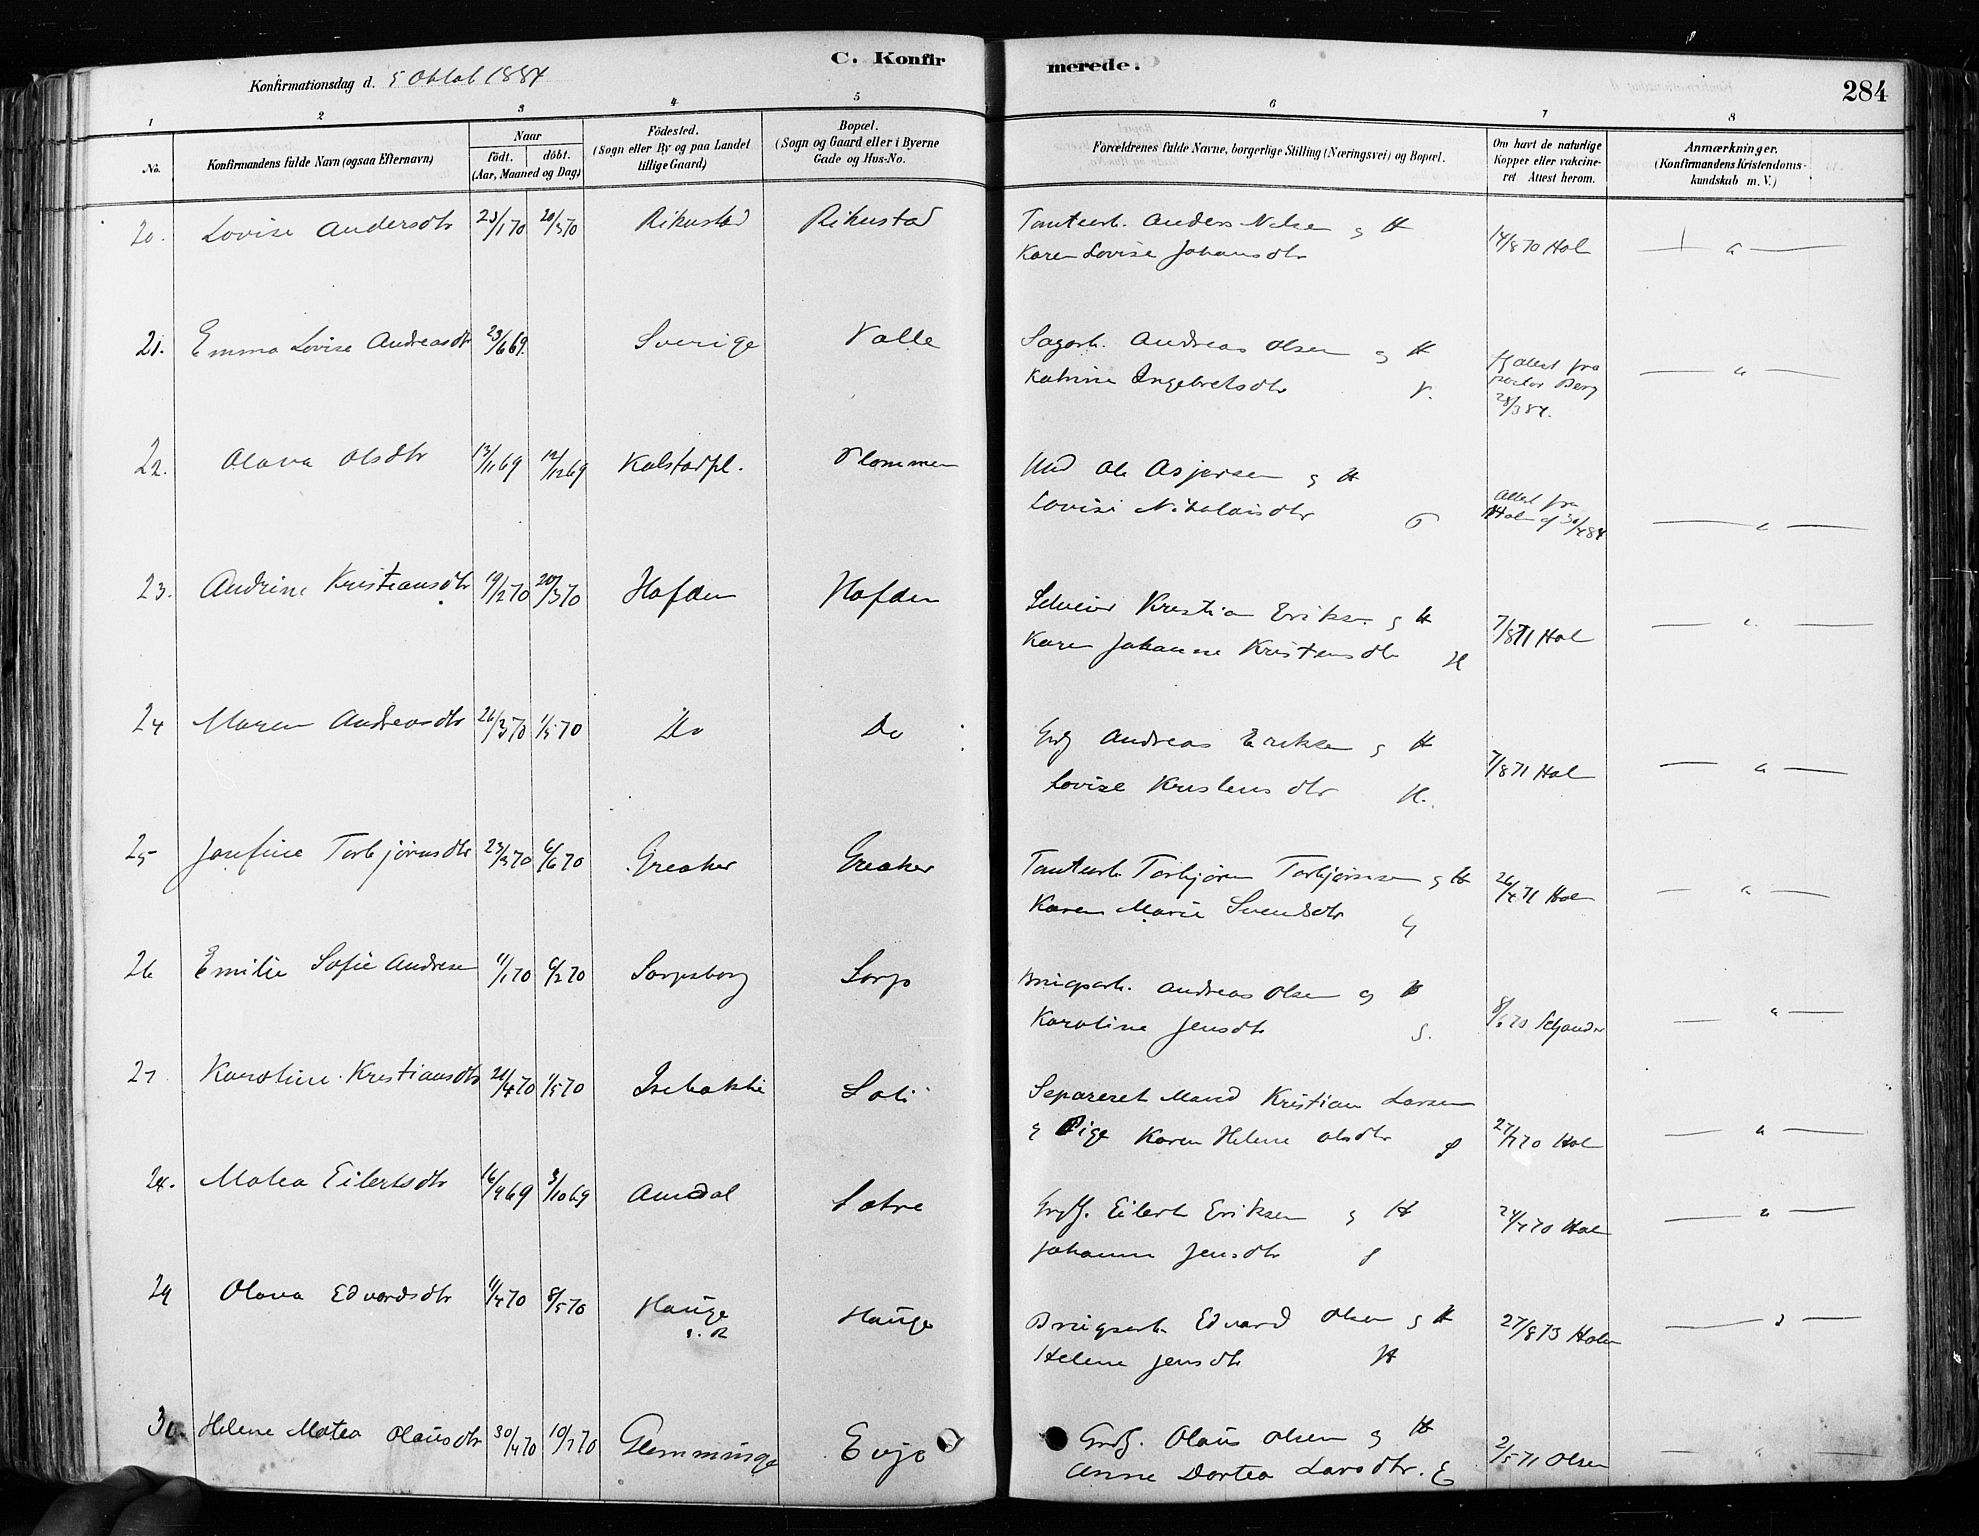 C. Konfirmerede.
284
Konfirmationsdag d. 5 Oktob 1884
1 2 3 4 5 6 7 8
No.
Konfirmandens fulde Navn (ogsaa Efternavn)
Naar
født. døbt.
(Aar, Maaned og Dag)
Fødested.
(Sogn eller By og paa Landet
tillige Gaard)
Bopæl.
(Sogn og Gaard eller i Byerne
Gade og Hus-No.
Forældrenes fulde Navne, borgerlige Stilling (Næringsvei) og Bopæl.
Om havt de naturlige
Kopper eller vakcine-
ret Attest herom.
Anmærkninger.
(Konfirmandens Kristendoms-
kundskab m. V.)
20. Lovise Andersdtr 23/1 70 20/3 70 Rikustad Rikustad Tomtearb. Anders Nelsen og H 14/8 70 Hol
Karen Lovise Johansdtr
21. Emma Lovise Andreasdtr 23/6 69. Sverige Valle Sagarb. Andreas Olsen og H
Katrine Ingebretsdtr V. attest fra
pastor Berg
28/3 84.
22. Olava Olsdtr 13/11 69 12/12 69 Kalstadpl. Ole Asjersen og H
Lovise Nikolaisdtr Attest fra
Holm af 30/4 84
23. Andrine Kristiansdtr 19/2 70 20/3 70 Hafden Hafden Selveier Kristian Eriksen og H 7/8 71 Hol
Karen Johanne Kristensdtr H
24 Maren Andreasdtr 26/3 70 1/5 70 Do Do Grdf Andreas Eriksen og H 7/8 71 Hol
Lovise Kristensdtr H.
25 Josefine Torbjørnsdtr 23/3 70 6/6 70 Greaker Greaker Tomtearb Torbjørn Torbjørnsen og H 26/4 71 Hol
Karen Marie Svendsdtr G
26 Emilie Sofie Andresen 11/1 70 6/2 70 Sarpsborg Sarp Brugsarb. Andreas Olsen og H
Karoline Jensdtr S.
27 Karoline Kristiansdtr 1/5 70 Isebakke Soli Separeret Mand Kristian Larsen
og Pige Karen Helene Olsdtr S 70 Hol
28. Matea Eilertsdtr 16/9 69 3/10 69 Aamdal Sætre Grdf. Eilert Eriksen og H 24/4 70 Holm
Johanne Jensdtr S
29 Olava Edvardsdtr 11/4 70 8/5 70 Hauge Hauge Brugsarb. Edvard Olsen og H 27/8 73 Holm
Helene Jensdtr H
30. Helene Matea Olausdtr 30/4 70 10/7 70 Glemminge Evje Grdf. Olaus Olsen og H 2/5 71 Olsen
Anne Dortea Larsdtr. E